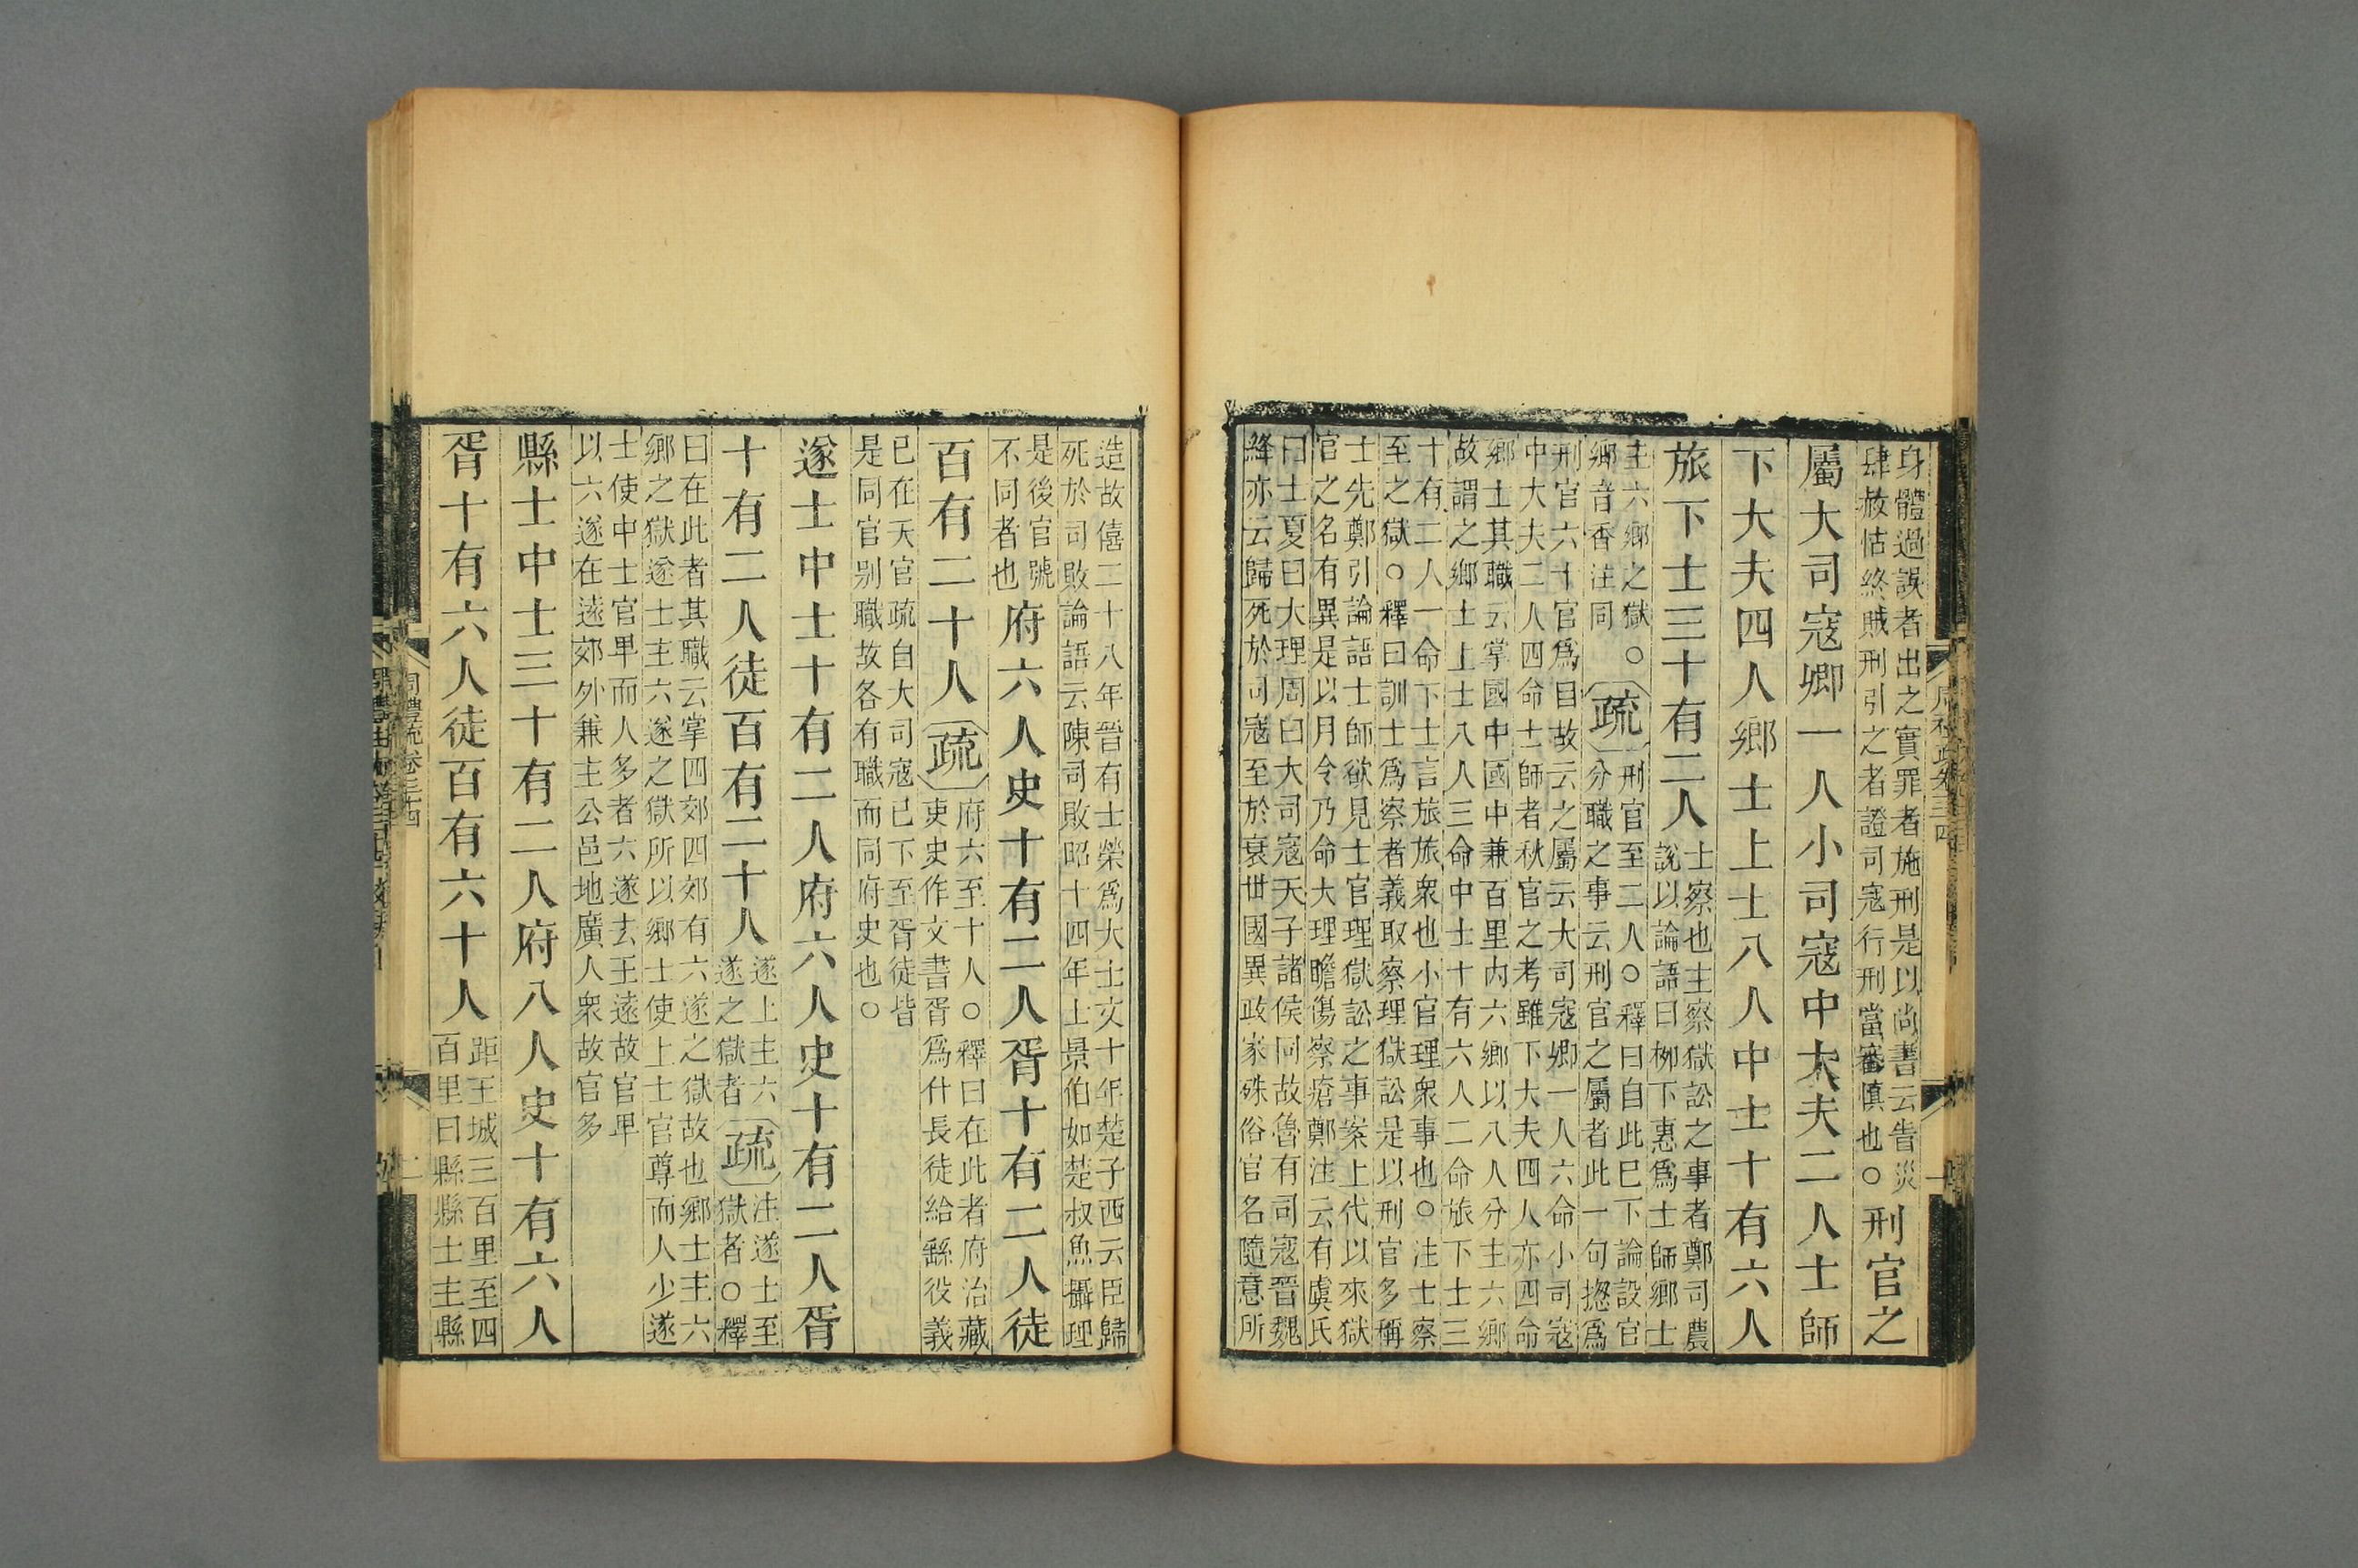 身體過誤者出之實罪者施刑是以尚書云眚災
肆赦怙終賊刑引之者證司寇行刑當審慎也○刑官之
屬大司寇卿一人小司寇中大夫二人士師
下大夫四人鄉士上士八人中士十有六人
旅下士三十有二人
士察也主察獄訟之事者鄭司農
說以論語曰柳下惠爲士師鄉士
主六鄉之獄○
鄉音香注同
疏
刑官至二人○釋曰自此已下論設官
分職之事云刑官之屬者此一句揔爲
刑官六十官爲目故云之屬云大司寇卿一人六命小司寇
中大夫二人四命士師者秋官之考雖下大夫四人亦四命
鄉士其職云掌國中國中兼百里内六鄉以八人分主六鄉
故謂之鄉士上士八人三命中士十有六人二命旅下士三
十有二人一命下士言旅旅衆也小官理衆事也○注士察
至之獄○釋曰訓士爲察者義取察理獄訟是以刑官多稱
士先鄭引論語士師欲見士官理獄訟之事案上代以來獄
官之名有異是以月令乃命大理瞻傷察瘡鄭注云有虞氏
曰士夏曰大理周曰大司寇天子諸侯同故魯有司寇晉魏
絳亦云歸死於司寇至於衰世國異政家殊俗官名隨意所
造故僖二十八年晉有士榮爲大士文十年楚子西云臣歸
死於司敗論語云陳司敗昭十四年士景伯如楚叔魚攝理
是後官號
不同者也
府六人史十有二人胥十有二人徒
百有二十人
疏
府六至十人○釋曰在此者府治藏
吏史作文書胥爲什長徒給繇役義
已在天官疏自大司寇已下至胥徒皆
是同官别職故各有職而同府史也○
遂士中士十有二人府六人史十有二人胥
十有二人徒百有二十人
遂士主六
遂之獄者
疏
注遂士至
獄者○釋
曰在此者其職云掌四郊四郊有六遂之獄故也鄉士主六
鄉之獄遂士主六遂之獄所以鄉士使上士官尊而人少遂
士使中士官卑而人多者六遂去王遠故官卑
以六遂在遠郊外兼主公邑地廣人衆故官多
縣士中士三十有二人府八人史十有六人
胥十有六人徒百有六十人
距王城三百里至四
百里曰縣縣士主縣
周禮疏卷三十四
二